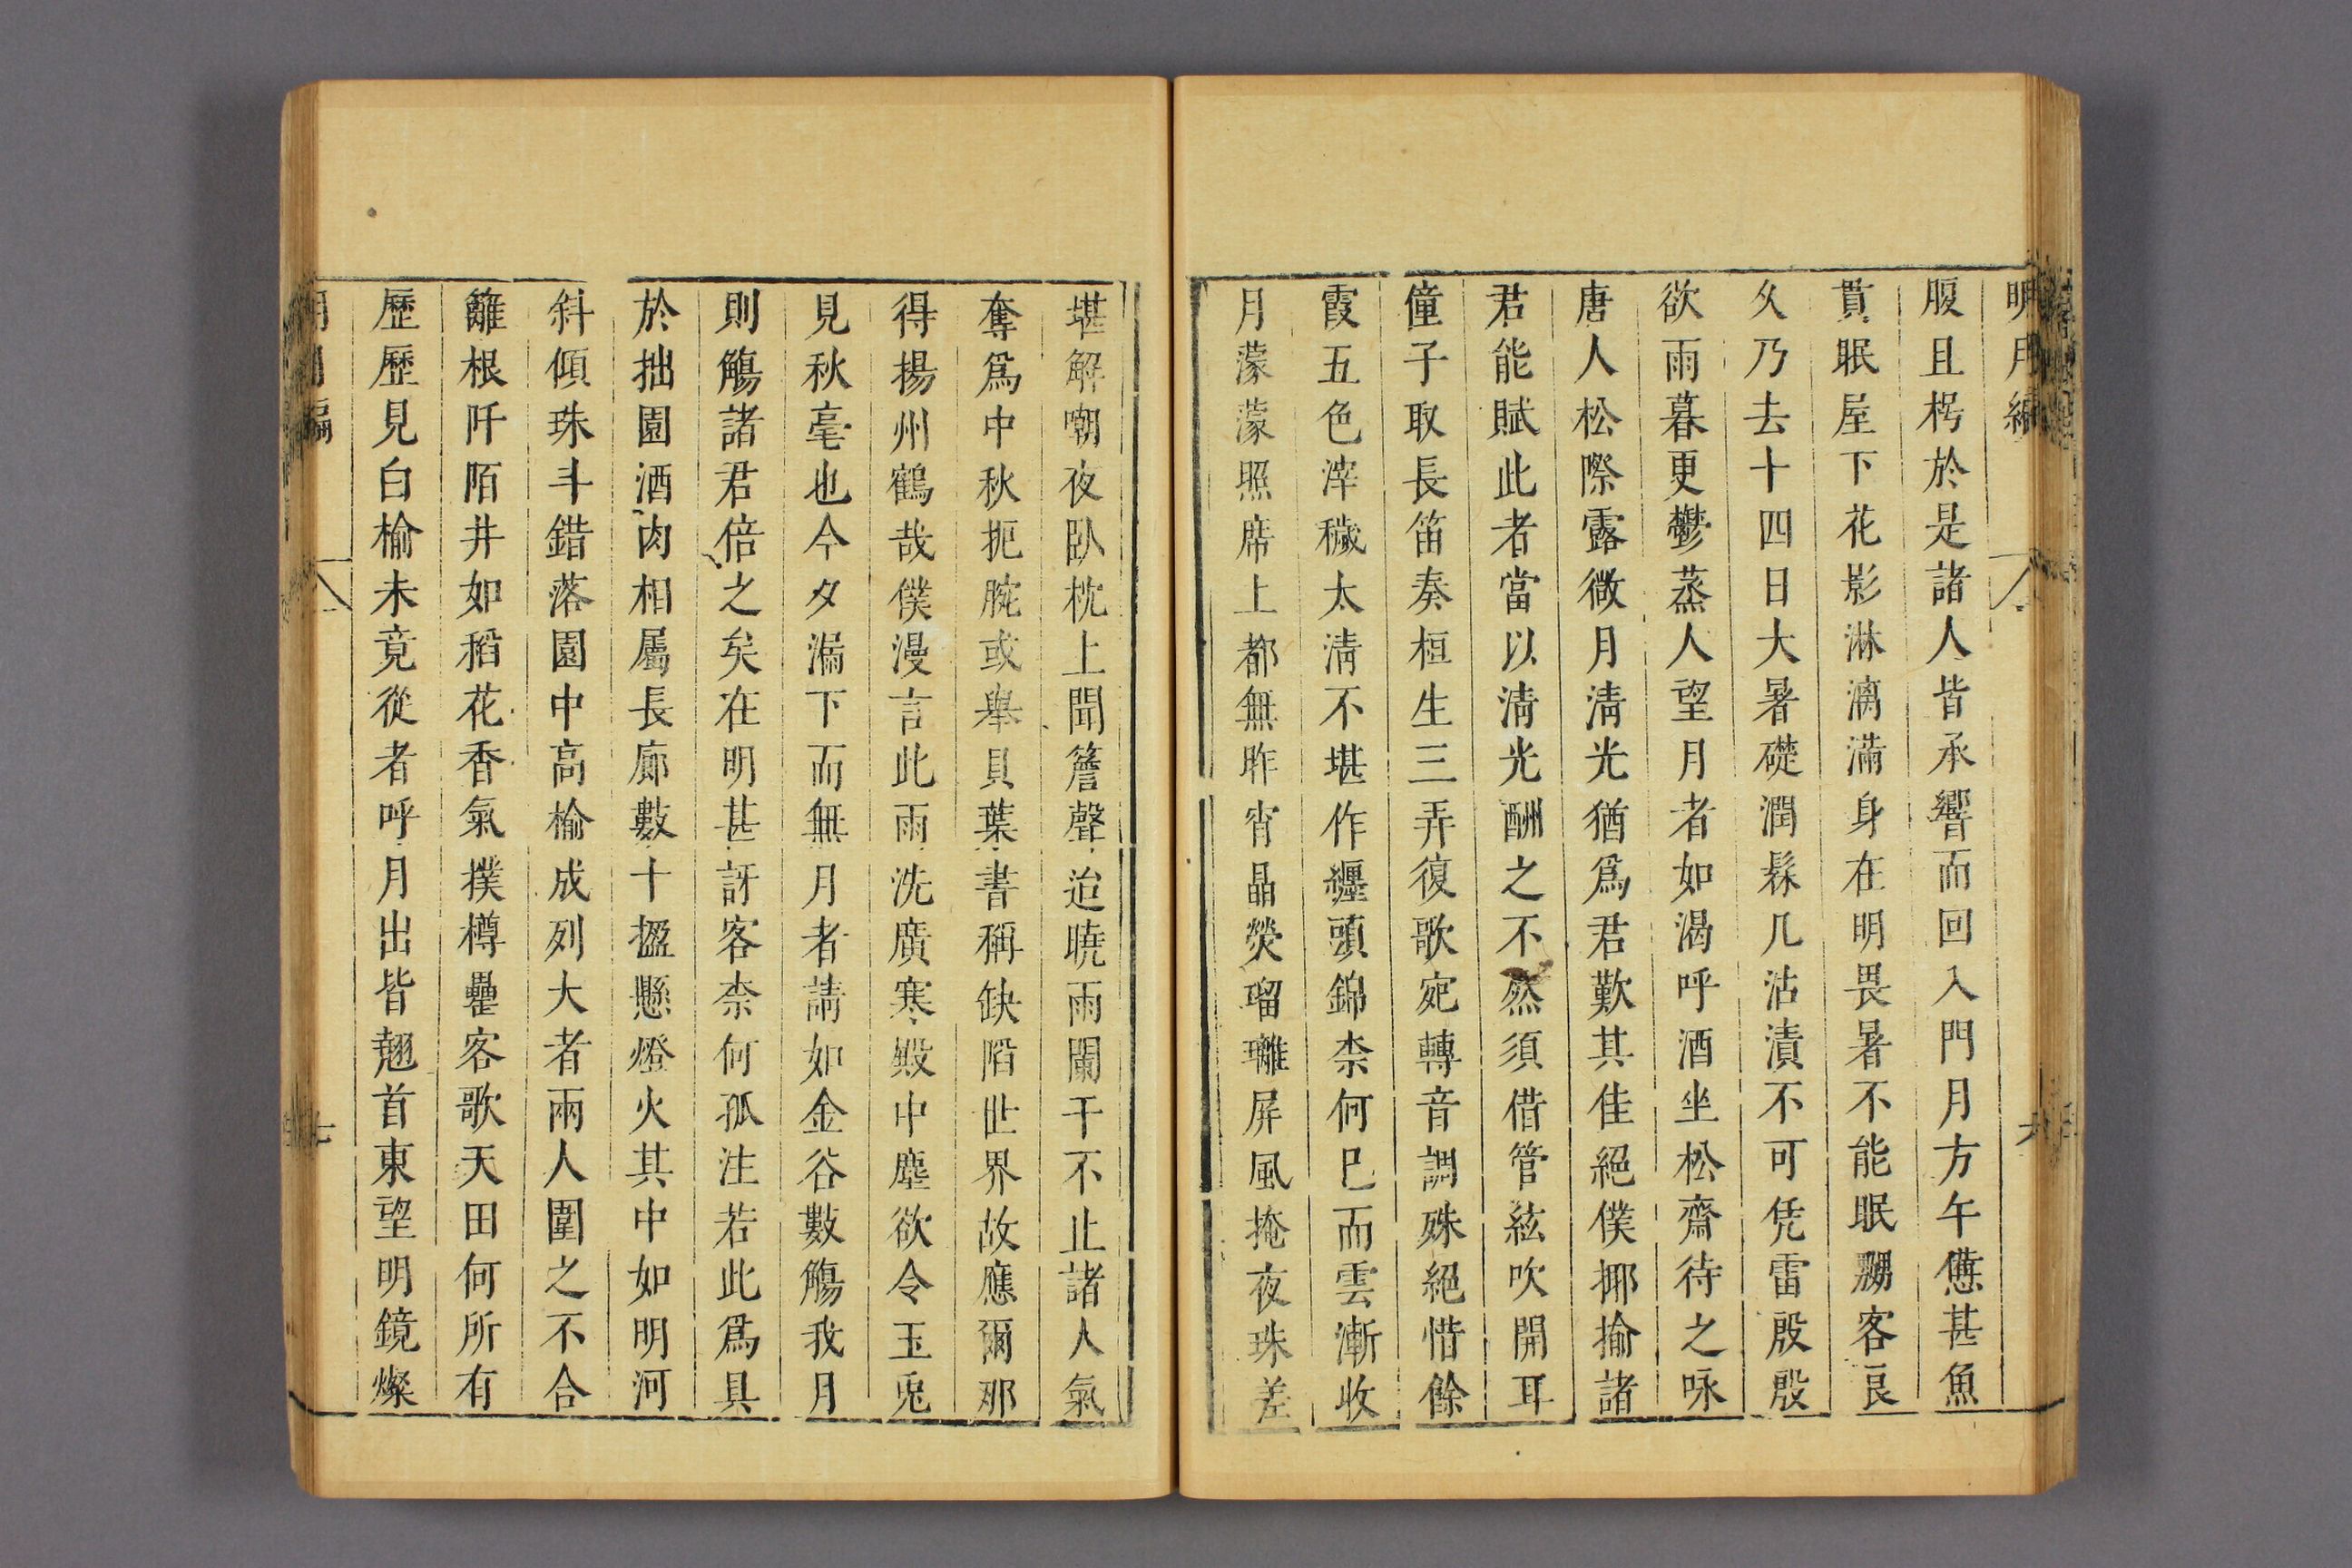 明月編 六
腹且枵於是諸人皆承響而回入門月方午憊甚魚
貫眠屋下花影淋漓滿身在明畏暑不能眠嬲客良
久乃去十四日大暑礎潤髹几沾漬不可凭雷殷殷
欲雨暮更鬱蒸人望月者如渴呼酒坐松齋待之咏
唐人松際露微月清光猶爲君歎其佳絕僕揶揄諸
君能賦此者當以清光酬之不然須借管絃吹開耳
僮子取長笛奏桓生三弄復歌宛轉音調殊絕惜餘
霞五色滓穢太清不堪作纏頭錦柰何巳而雲漸收
月濛濛照席上都無昨宵晶熒瑠璃屏風掩夜珠差
堪解嘲夜臥枕上聞簷聲迨曉雨闌干不止諸人氣
奪爲中秋扼腕或舉貝葉書稱缺陷世界故應爾那
得揚州鶴哉僕漫言此雨洗廣寒殿中塵欲令玉兎
見秋毫也今夕漏下而無月者請如金谷數觴我月
則觴諸君倍之矣在明甚訝客柰何孤注若此爲具
於拙園酒肉相屬長廊數十楹懸燈火其中如明河
斜傾珠斗錯落園中高榆成列大者兩人圍之不合
籬根阡陌井如稻花香氣撲樽罍客歌天田何所有
歷歷見白榆未竟從者呼月出皆翹首東望明鏡燦
明月編 七